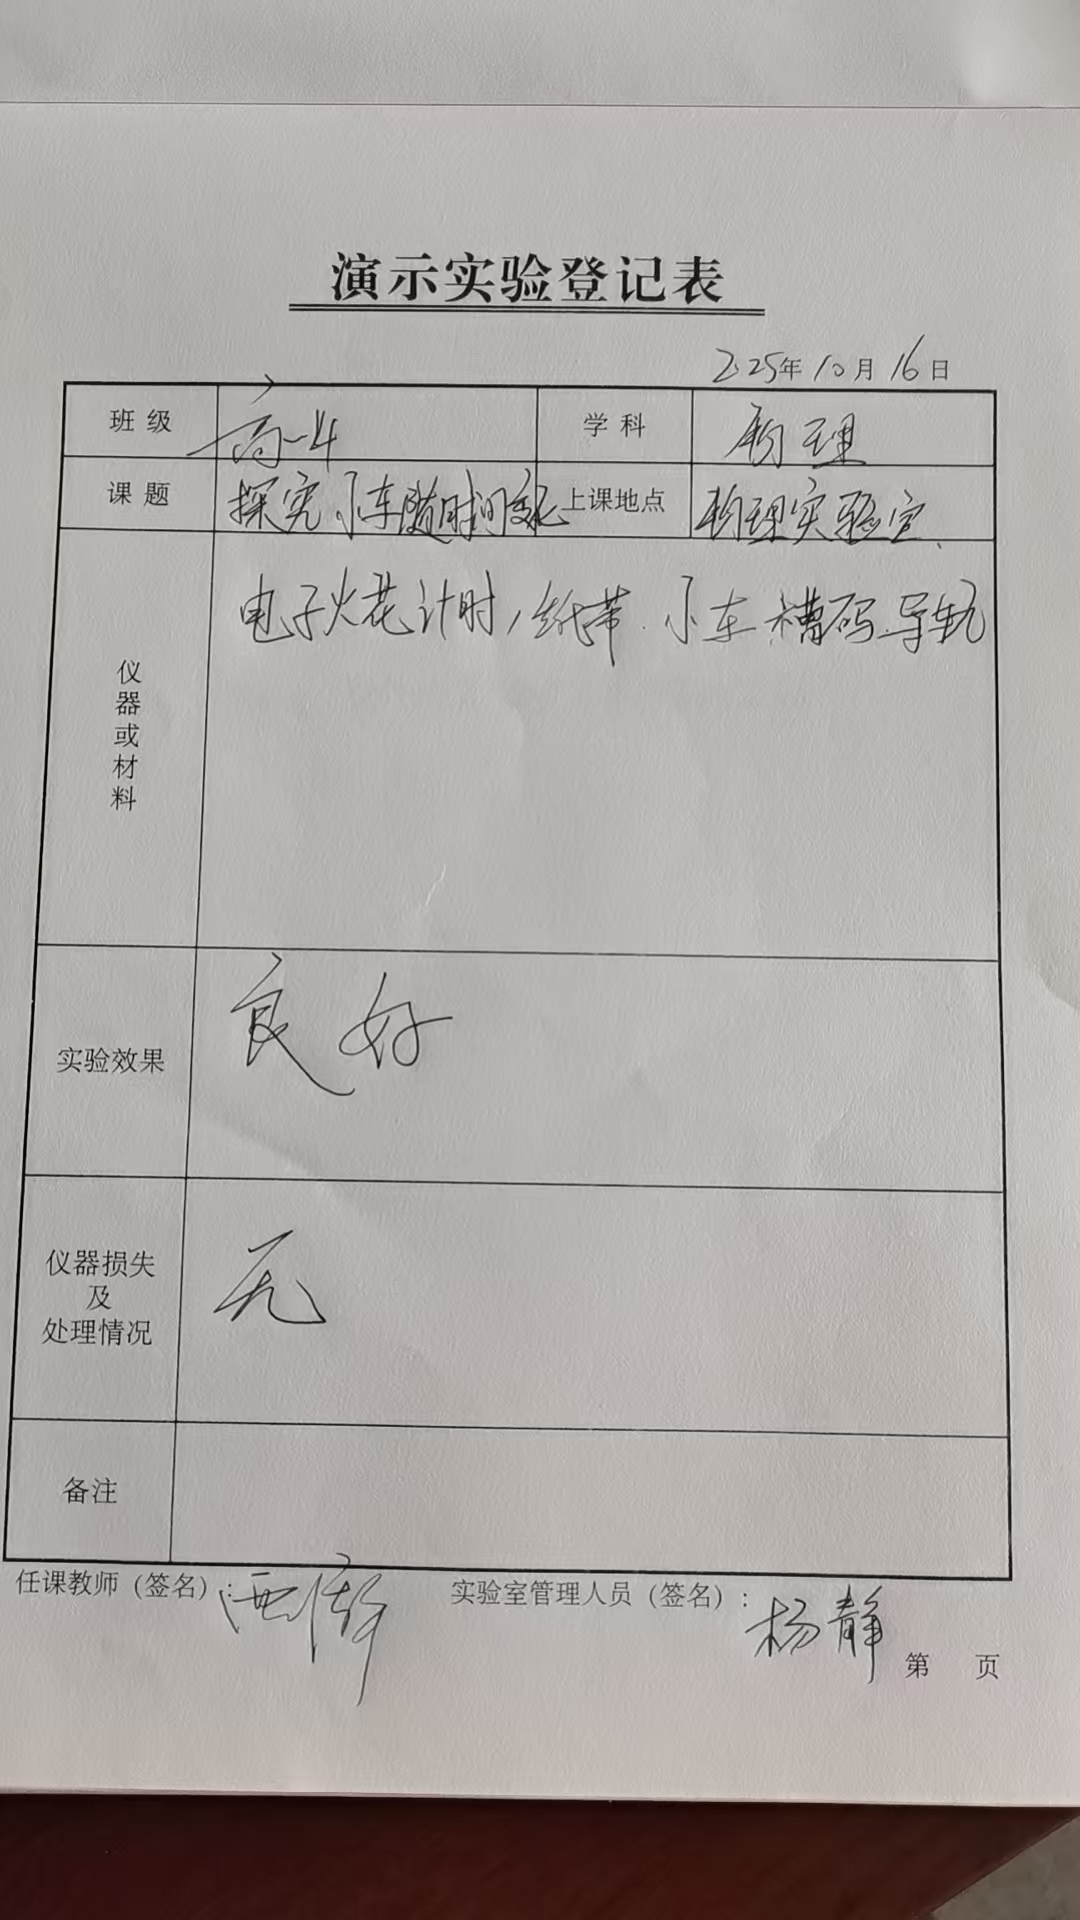 演示实验登记表
2025年10月16日
班级 高一4 学科 物理
课题 探究小车随时间变化 上课地点 物理实验室
仪器或材料 电子火花计时, 纸带、小车 槽码、导轨
实验效果 良好
仪器损失及处理情况 无
备注
任课教师（签名）： 实验室管理人员（签名）：杨静
第 页